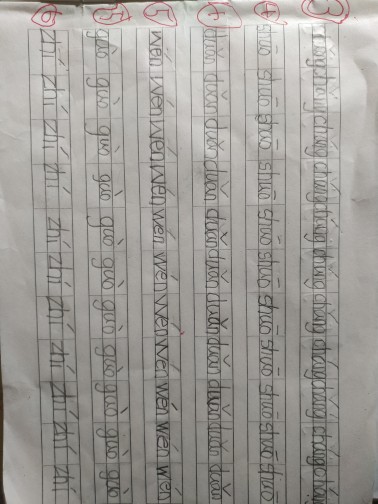 cháng cháng cháng cháng cháng cháng cháng cháng cháng cháng
shuō shuō shuō shuō shuō shuō shuō shuō shuō shuō shuō
duǎn duǎn duǎn duǎn duǎn duǎn duǎn duǎn duǎn duǎn duǎn
⑤ wén wén wén wén wén wén wén wén wén wén wén wén
guò guò guò guò guò guò guò guò guò guò guò
⑥ zhí zhí zhí zhí zhí zhí zhí zhí zhí zhí zhí